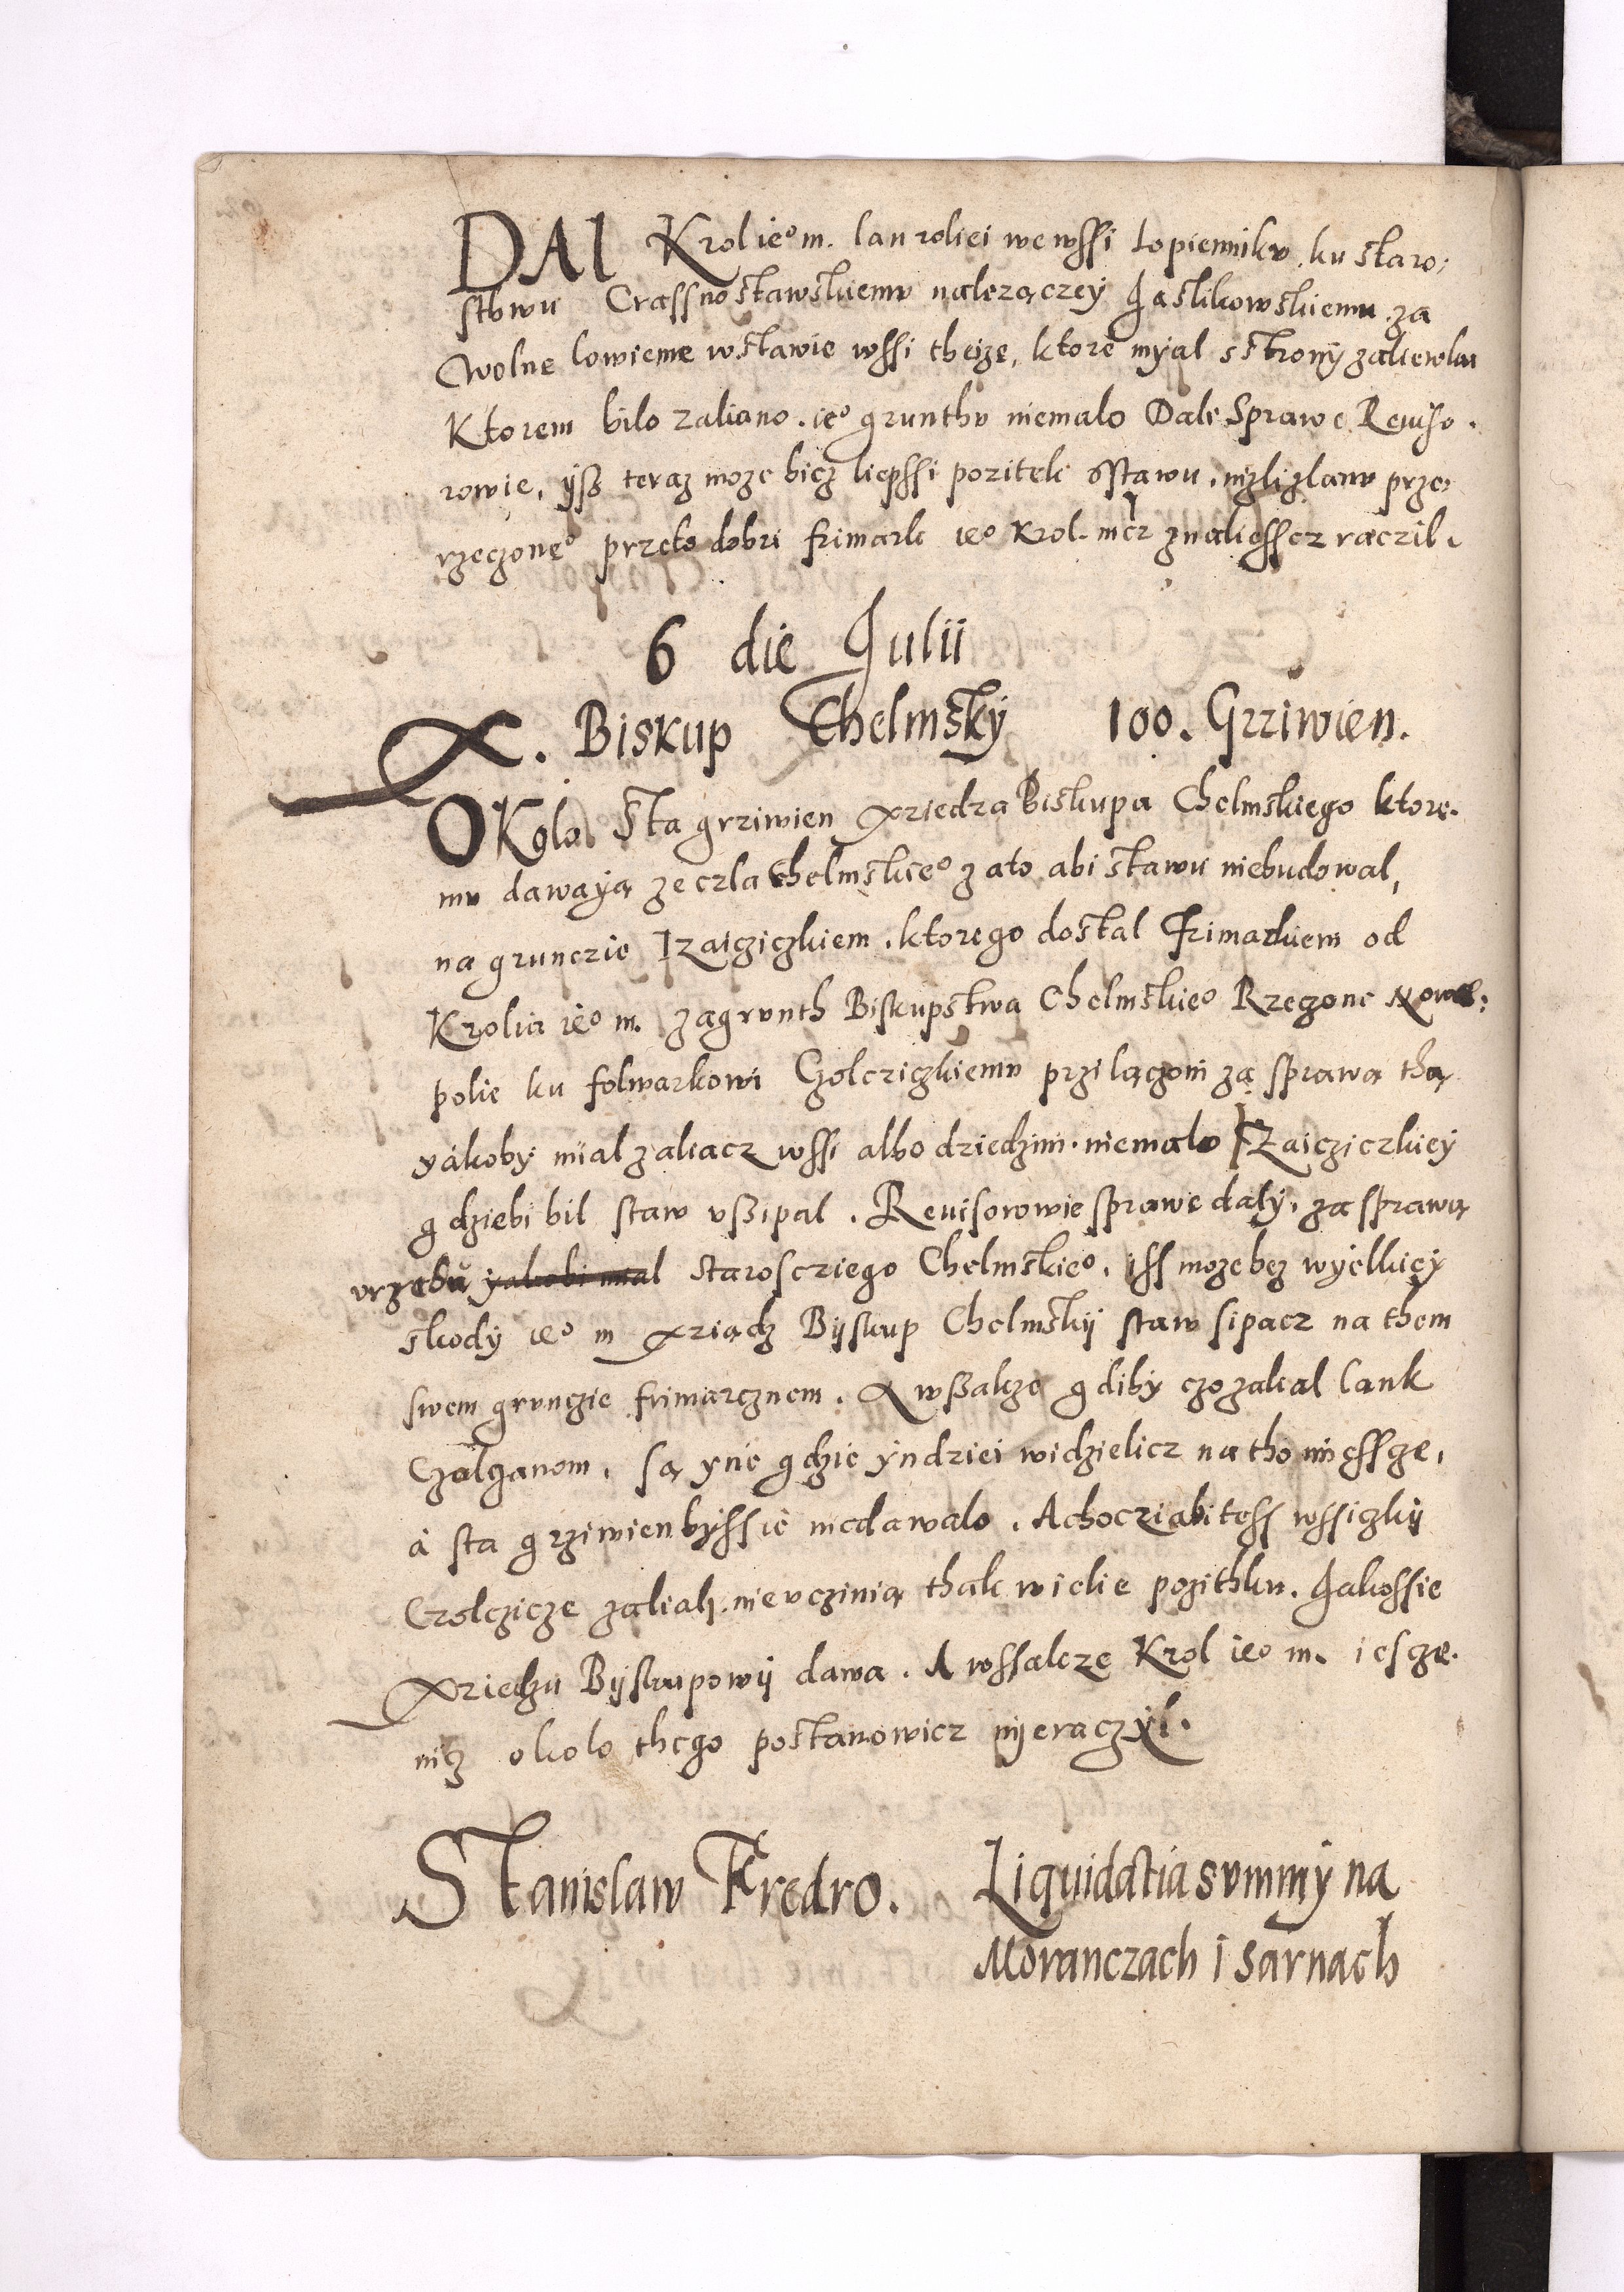 DAl Krol ieº m. lan roliei we wssi Lopiennikv ku staro:
sthwu Crassnostawskiemv nalezączey Jaslikowskiemu za
wolne lowieme wstawie wssi theize, ktore myal s strony zaliewku
Ktorem bilo zaliano. ieº grunthv niemalo Dale Sprawe Reuiso.
rowie, ysz teraz moze bicz liepssi pozitek s stawu, nizli zlanv prze
rzeczoneº przeto dobri frimark ieº Krol. mcz znaliesscz raczil.
6 die Julii
X. Biskup Chelmsky 100. Grziwien.
OKolo Sta grziwien xziedza Biskupa Chelmskiego ktore.
mv dawayą ze czla Chelmskieº zato abi stawu niebudowal,
na grunczie Izaicziczkiem. ktorego dostal Frimarkiem od
Krolia ieº m. zagrvnth Biskupstwa Chelmskieº Rzeczone Nowe:
polie ku folwarkowi Czolcziczkiemv przilączoni za sprawą thą
yakoby mial zaliacz wssi albo dziedzini. niemalo Izaicziczkiey
gdziebi bil staw vszipal. Reuisorowie sprawe daly, za sprawą
vrzedu yakobi mial Staroscziego Chelmskieº, iss moze bez wyelkiey
skody ieº m xziądz Byskup Chelmsky staw sipacz na them
swem grvnczie frimarcznem. A wszakze gdiby czo zalial lank
Czolganom, są ynie gdzie yndziei widzielicz na tho miessce,
a sta grziwien byssie niedawalo. A choczia bi tess wssiczky
Czolczicze zaliali. nie vczinią thak wielie pozithku. Jakossie
xziedzu Byskupowy dawa. A wssakze Krol ieº m. iescze.
nicz okolo thego postanowicz nyeraczyl.
Stanislaw Fredro. Liquidatia svmmy na
Moranczach i Sarnach